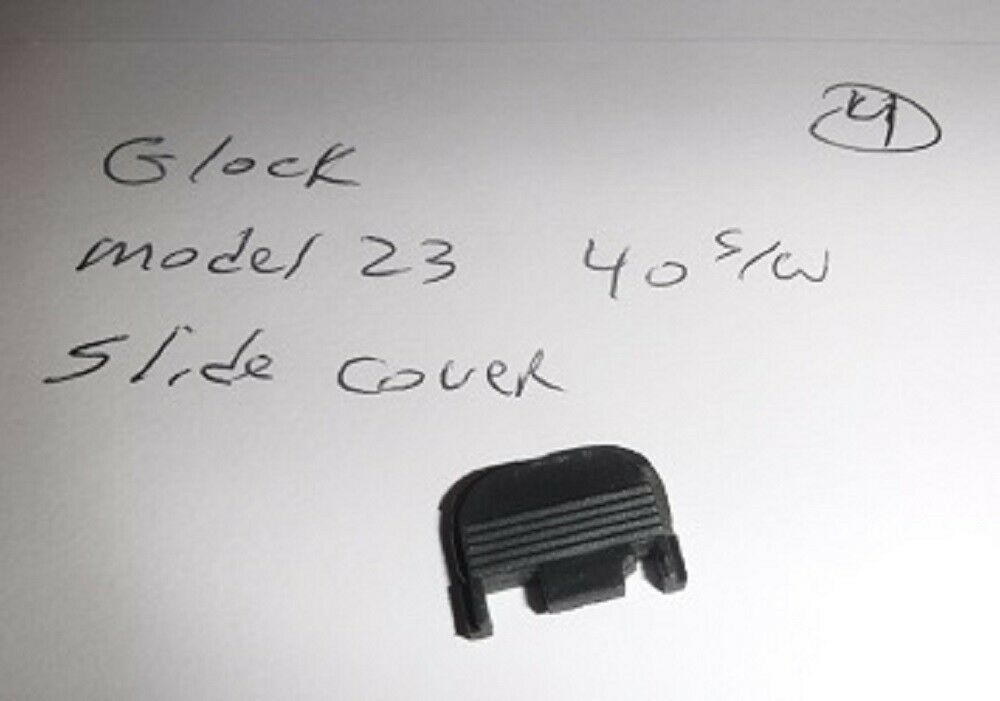 4
Glock
model 23 40 S/W
Slide cover